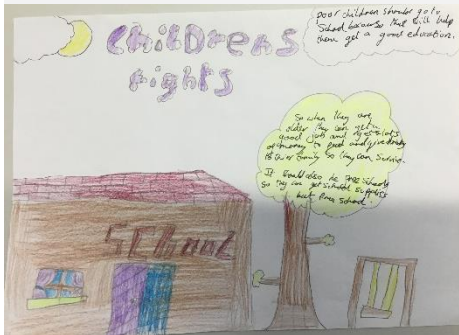 Childrens
rights
poor children should go to
School because that will help
them get a good education.
So when they are
older they can get a
good job and get lots
of money to and give money
to their family so they can survive.
It could also be free school
so they can get school supplies
but free school
SCHOOL